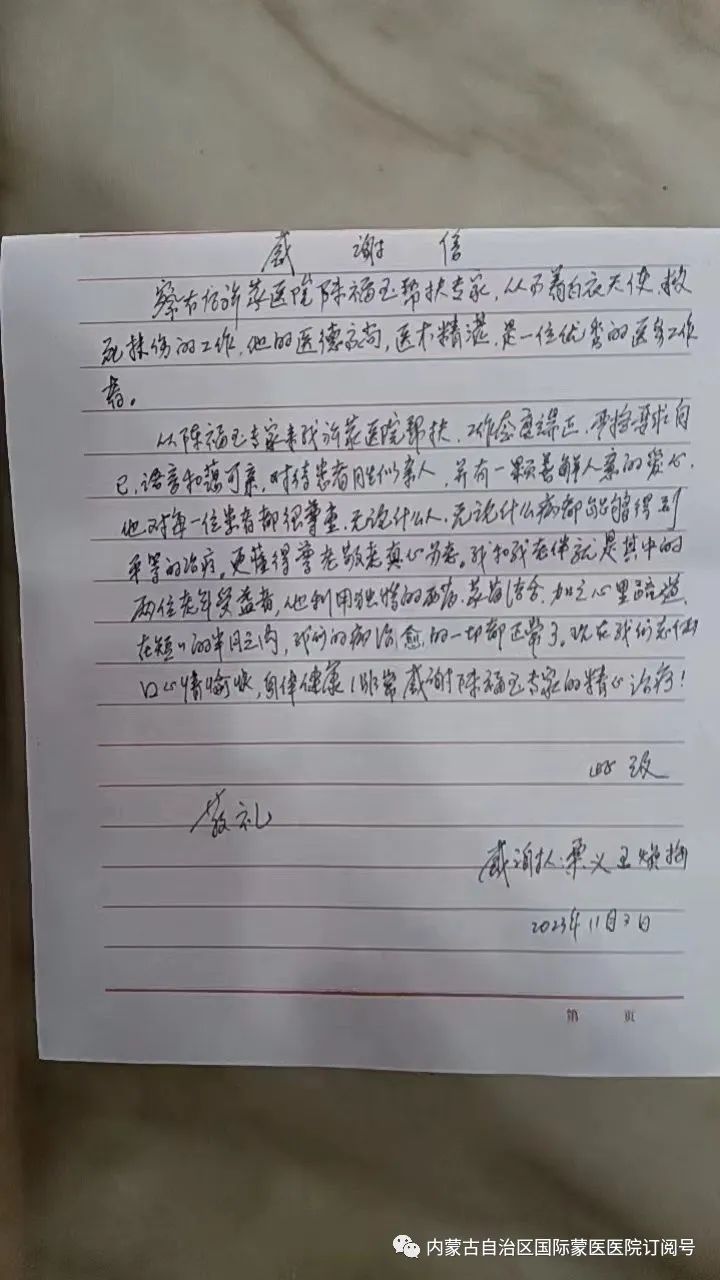 感谢信
医院陈福玉帮扶专家，从事着白衣天使、救
死扶伤的工作，他的医德高尚，医术精湛，是一位优秀的医务工作
者。
从陈福玉专家来我 蒙医院帮扶，工作态度端正，严格要求自
己，语言和蔼可亲，对待患者胜似亲人，并有一颗善解人意的爱心，
他对每一位患者都很尊重，无论什么人，无论什么病都能够得到
平等的治疗。更懂得尊老敬老真心为老。我和我老伴就是其中的
两位老年受益者，他利用独特的 结合，加之心里疏道，
在短短的半月之内，我们的病治愈的一切都正常了。现在我们老俩
口心情愉快，身体健康！非常感谢陈福玉专家的精心治疗！
此致
敬礼
感谢人：
2023年11月3日
第 页
内蒙古自治区国际蒙医医院订阅号